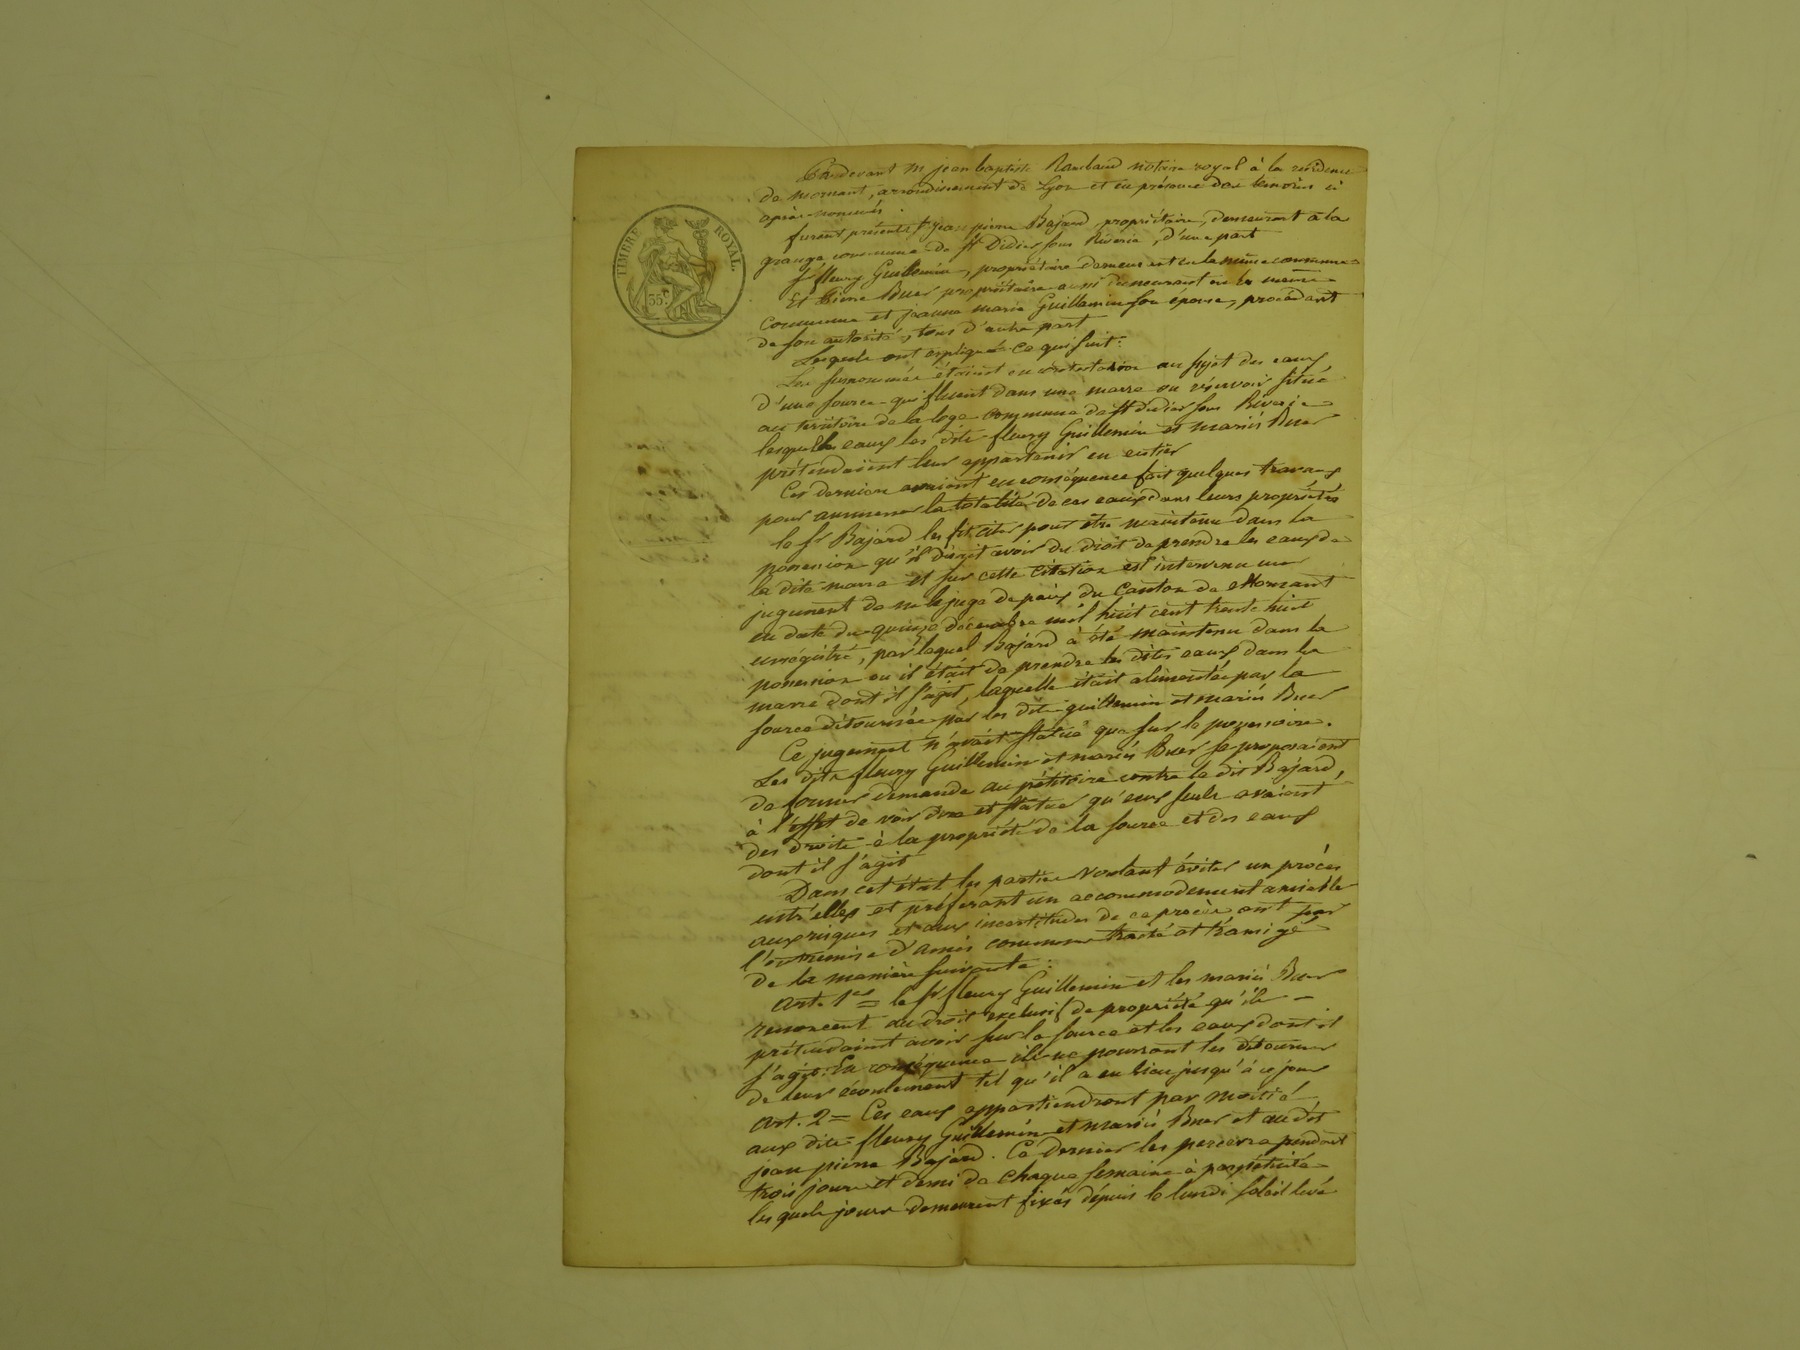 TIMBRE ROYAL.
35c
Pardevant Me jean baptiste Raubaud notaire royal à la résidence
de mornant, arrondissement de Lyon et en présence des témoins ci
après nommés
furent présents sr jean pierre Bajard propriétaire, demeurant à la
grange commune de St Didier sous Riverie, d'une part
Sr fleury Guillemin, propriétaire demeurant en la même commune
Et pierre Buer propriétaire aussi demeurant en la même
commune et jeanne marie Guillemin son épouse, procédant
de son autorité, tous d'autre part
Lesquels ont expliqué ce qui suit:
Les susnommés étaient en contestation au sujet des eaux
d'une source qui fluent dans une marre ou réservoir situé
au territoire de la loge commune de St didier sous Riverie
lesquelles eaux les dits fleury Guillemin et mariés Buer
prétendaient leur appartenir en entier
Ces derniers avaient en conséquence fait quelques travaux
pour ammener la totalité de ces eaux dans leurs propriétés
le sr Bajard les fit citer pour être maintenu dans la
possession qu'il disait avoir du droit de prendre les eaux de
la dite marre et sur cette citation est intervenu un
jugement de mr le juge de paix du Canton de Mornant
en date du quinze décembre mil huit cent trente huit
enregistré, par lequel Bajard à été maintenu dans la
possession ou il était de prendre les dites eaux dans la
marre dont il s'agit, laquelle était alimentée par la
source détournée par les dits guillemin et mariés Buer
Ce jugement n'avait statué que sur le possessoire.
Les dits fleury Guillemin et mariés Buer se proposaient
de former demande au pétitoire contre le dit Bajard,
à l'effet de voir dire et statuer qu'eux seuls avaient
des droits à la propriété de la source et des eaux
dont il s'agit
Dans cet état les parties voulant éviter un procès
entr'elles et préférant un accommodement amiable
aux risques et aux incertitudes de ce procès ont par
l'entremise d'amis communs traité et transigé
de la manière suivante:
art. 1er = le sr fleury Guillemin et les mariés Buer
renoncent au droit exclusif de propriété qu'ils
prétendaient avoir sur la source et les eaux dont il
s'agit. En conséquence ils ne pourront les détourner
de leur écoulement tel qu'il a eu lieu jusqu'à ce jour
art. 2 = Ces eaux appartiendront par moitié
aux dits fleury Guillemin et mariés Buer et au dit
jean pierre Bajard. Ce dernier les percevra pendant
trois jours et demi de chaque semaine à perpétuité
les quels jours demeurent fixés depuis le lundi soleil levé